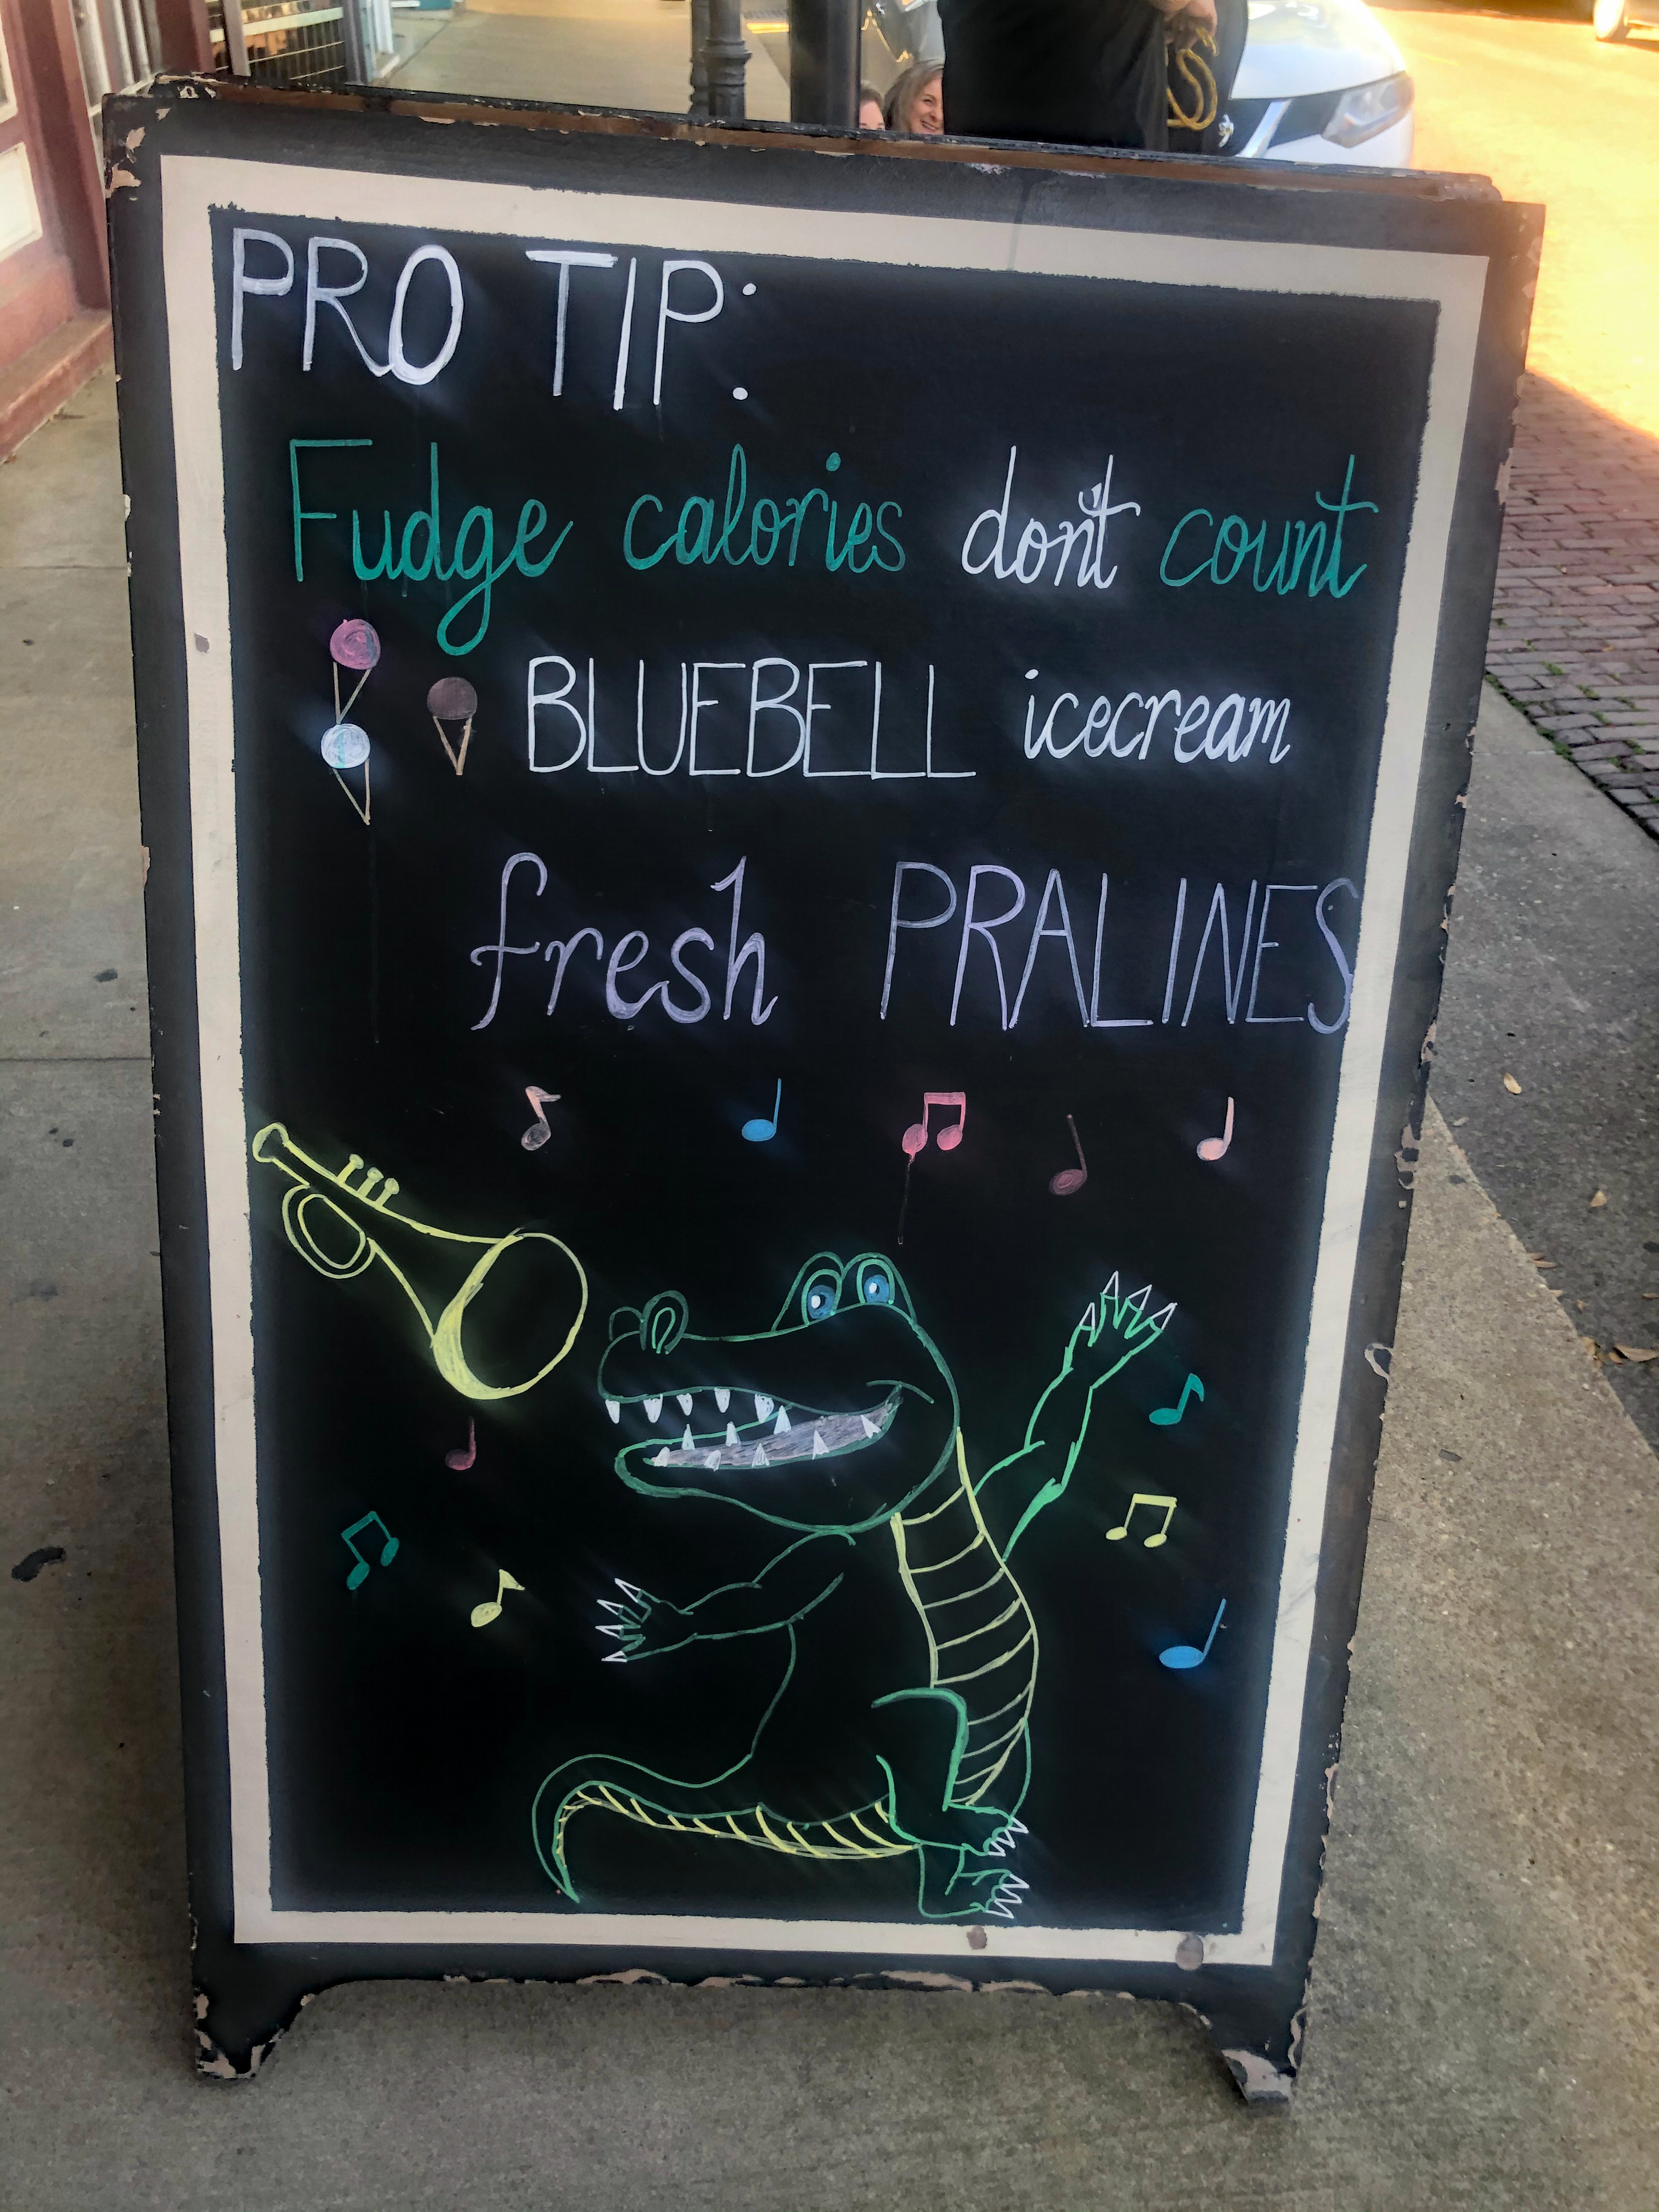 PRO TIP:
Fudge calories don't count
BLUEBELL icecream
fresh PRALINES